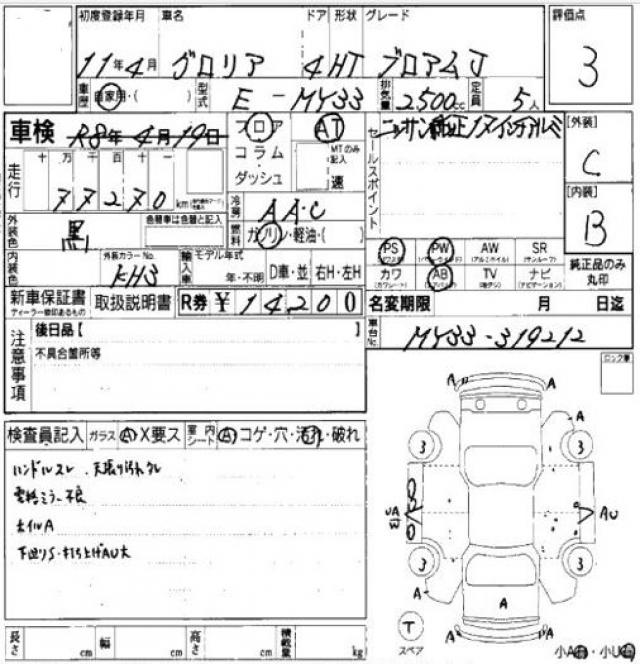 初度登録年月 車名 ドア 形状 グレード 評価点
11年4月 グロリア 4HT ブロアムJ 3
車歴 自家用・( ) 型式 E-MY33 排気量 2500cc 定員 5人
車検 R8年4月19日 フロア AT セールスポイント ニッサン純正 [外装]
コラム・ダッシュ MTのみ記入 速 C
走行 十万千百十一 [内装]
77270km B
外装色 黒 色替車は色替と記入 冷房 AA・C
燃料 ガソリン・軽油・( ) PS PW AW SR
(パワステ) (パワーウインド) (アルミホイル) (サンルーフ)
内装色 外装カラーNo. KH3 輸入車 モデル年式 年・不明 D車・並 右H・左H カワ AB TV ナビ 純正品のみ丸印
(カワシート) (エアバック) (地デジ) (ナビゲーション)
新車保証書 取扱説明書 R券 ¥14200 名変期限 月 日迄
ディーラー捺印あるもの
注意事項 後日品【 】 車台No. MY33-319212
不具合箇所等 ロック車
検査員記入 ガラス A X要ス 室内シート A コゲ・穴・汚れ・破れ
ハンドルスレ
不良
下廻りS・打ち上げAU大
A A
A
3 3
AU
3 3
A A
A
A A
T
スペア 小A・小U
長さ cm 幅 cm 高さ cm 積載量 kg